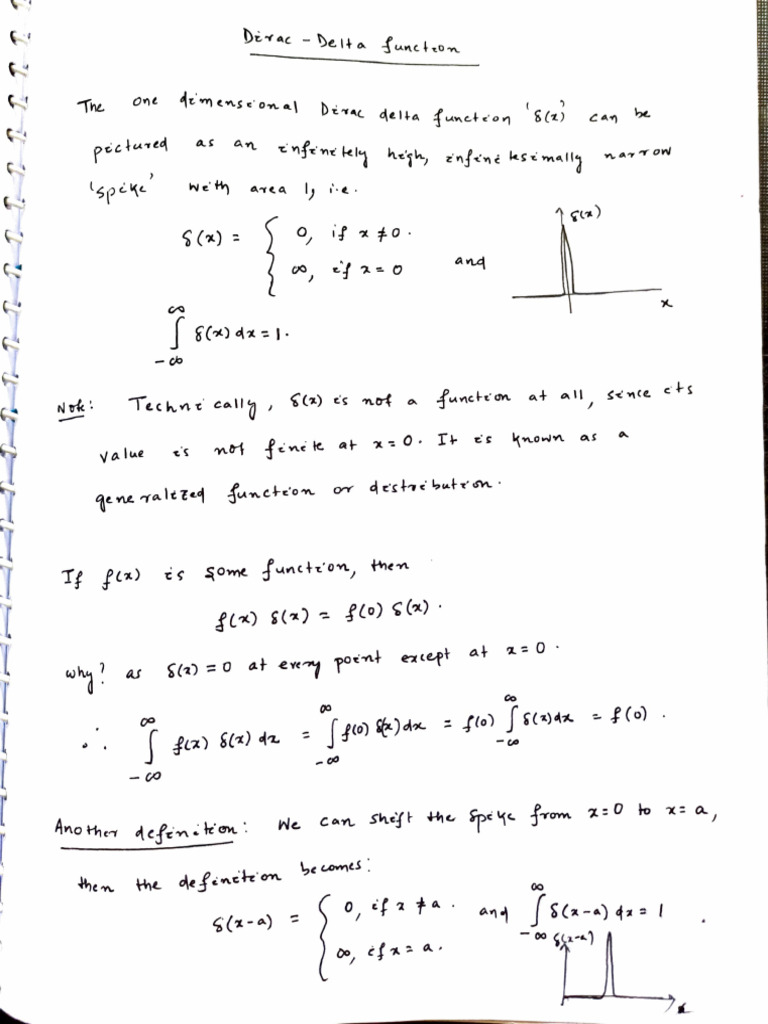 Dirac - Delta function
The one dimensional Dirac delta function 'δ(x)' can be
pictured as an infinitely high, infinitesimally narrow
'spike' with area 1, i.e.
δ(x) = { 0, if x ≠ 0.
∞, if x = 0
and
δ(x)
x
∫_{-∞}^{∞} δ(x) dx = 1.
Note: Technically, δ(x) is not a function at all, since its
value is not finite at x = 0. It is known as a
generalized function or distribution.
If f(x) is some function, then
f(x) δ(x) = f(0) δ(x).
why? as δ(x) = 0 at every point except at x = 0.
∴ ∫_{-∞}^{∞} f(x) δ(x) dx = ∫_{-∞}^{∞} f(0) δ(x) dx = f(0) ∫_{-∞}^{∞} δ(x) dx = f(0).
Another definition: We can shift the spike from x=0 to x=a,
then the definition becomes:
δ(x-a) = { 0, if x ≠ a. and ∫_{-∞}^{∞} δ(x-a) dx = 1.
∞, if x = a.
δ(x-a)
x